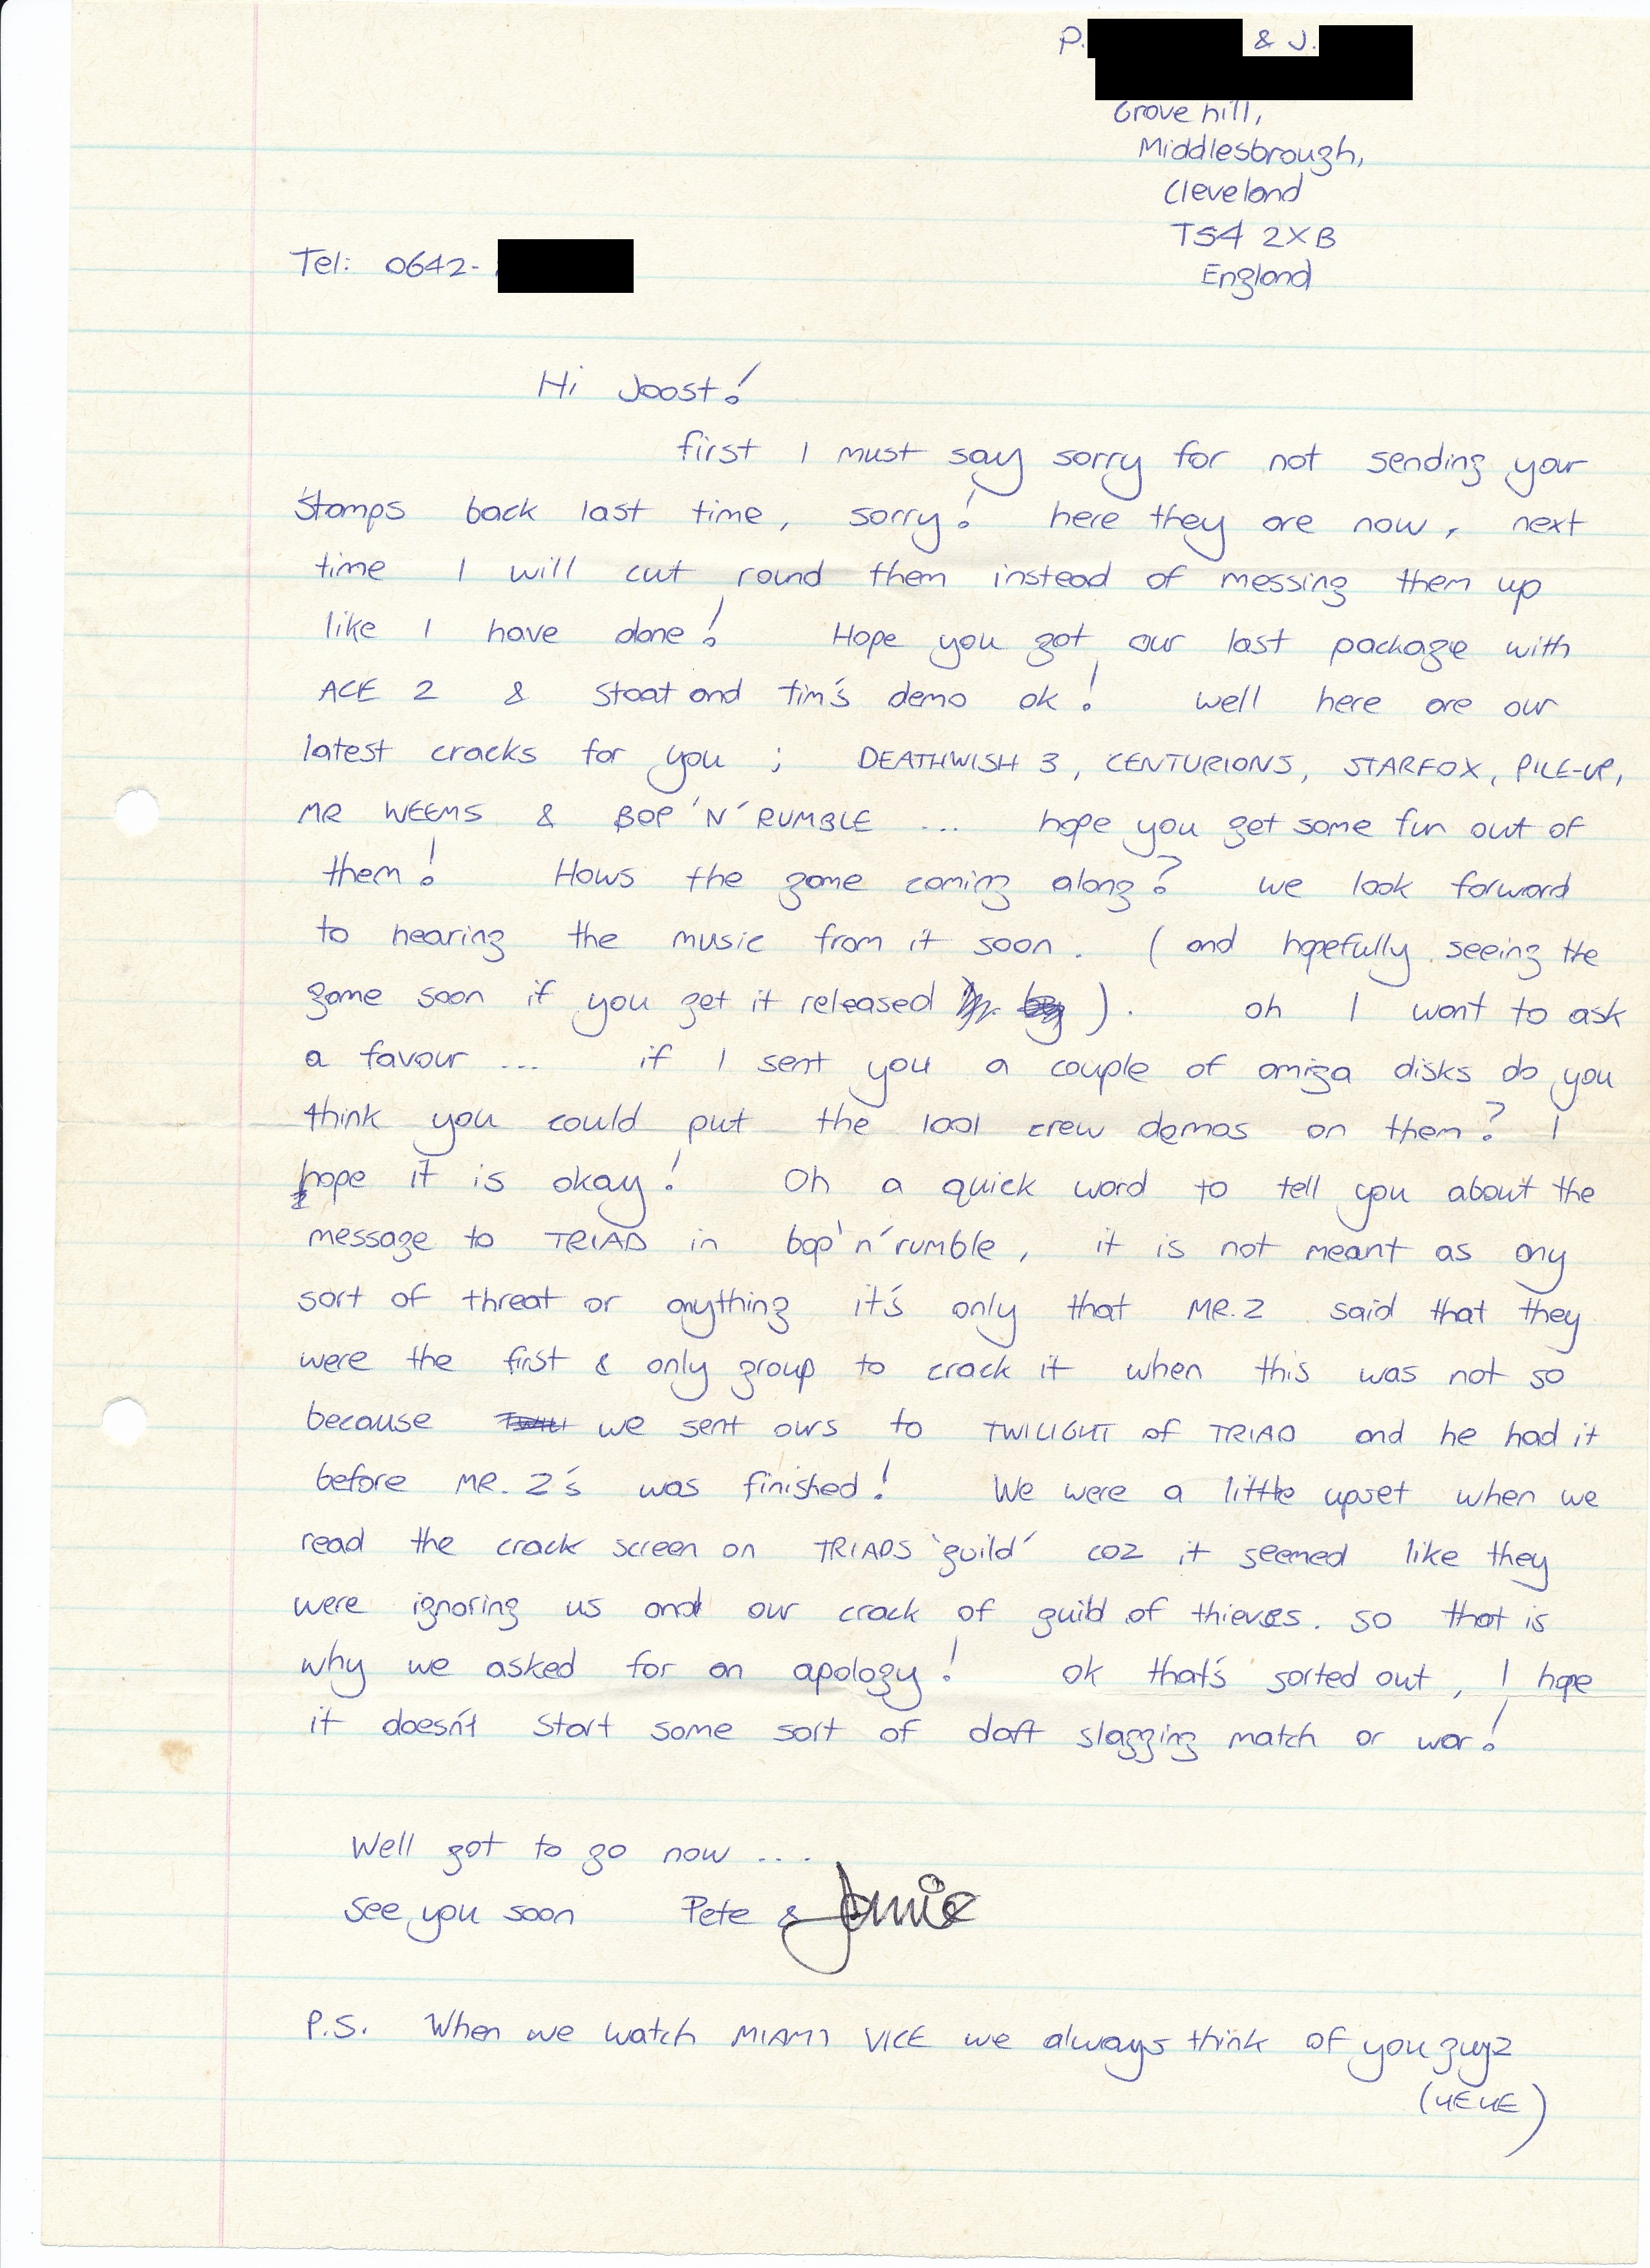 P. & J.
Grove hill,
Middlesbrough,
Cleveland
TS4 2XB
England
Tel: 0642-
Hi Joost!
first I must say sorry for not sending your
stamps back last time, sorry! here they are now, next
time I will cut round them instead of messing them up
like I have done! Hope you got our last package with
ACE 2 & Stoat and tim's demo ok! well here are our
latest cracks for you ; DEATHWISH 3, CENTURIONS, STARFOX, PILE-UP,
MR WEEMS & BOP 'N' RUMBLE ... hope you get some fun out of
them! Hows the game coming along? we look forward
to hearing the music from it soon. (and hopefully seeing the
game soon if you get it released ). oh I want to ask
a favour ... if I sent you a couple of amiga disks do you
think you could put the 1001 crew demos on them? I
hope it is okay! Oh a quick word to tell you about the
message to TRIAD in bop'n'rumble, it is not meant as any
sort of threat or anything it's only that MR.Z said that they
were the first & only group to crack it when this was not so
because we sent ours to TWILIGHT of TRIAD and he had it
before MR. Z's was finished! We were a little upset when we
read the crack screen on TRIADS 'guild' coz it seemed like they
were ignoring us and our crack of guild of thieves. so that is
why we asked for an apology! ok that's sorted out, I hope
it doesn't start some sort of daft slagging match or war!
Well got to go now ....
See you soon Pete & Jamie
P.S. When we watch MIAMI VICE we always think of you guyz
(HEHE)